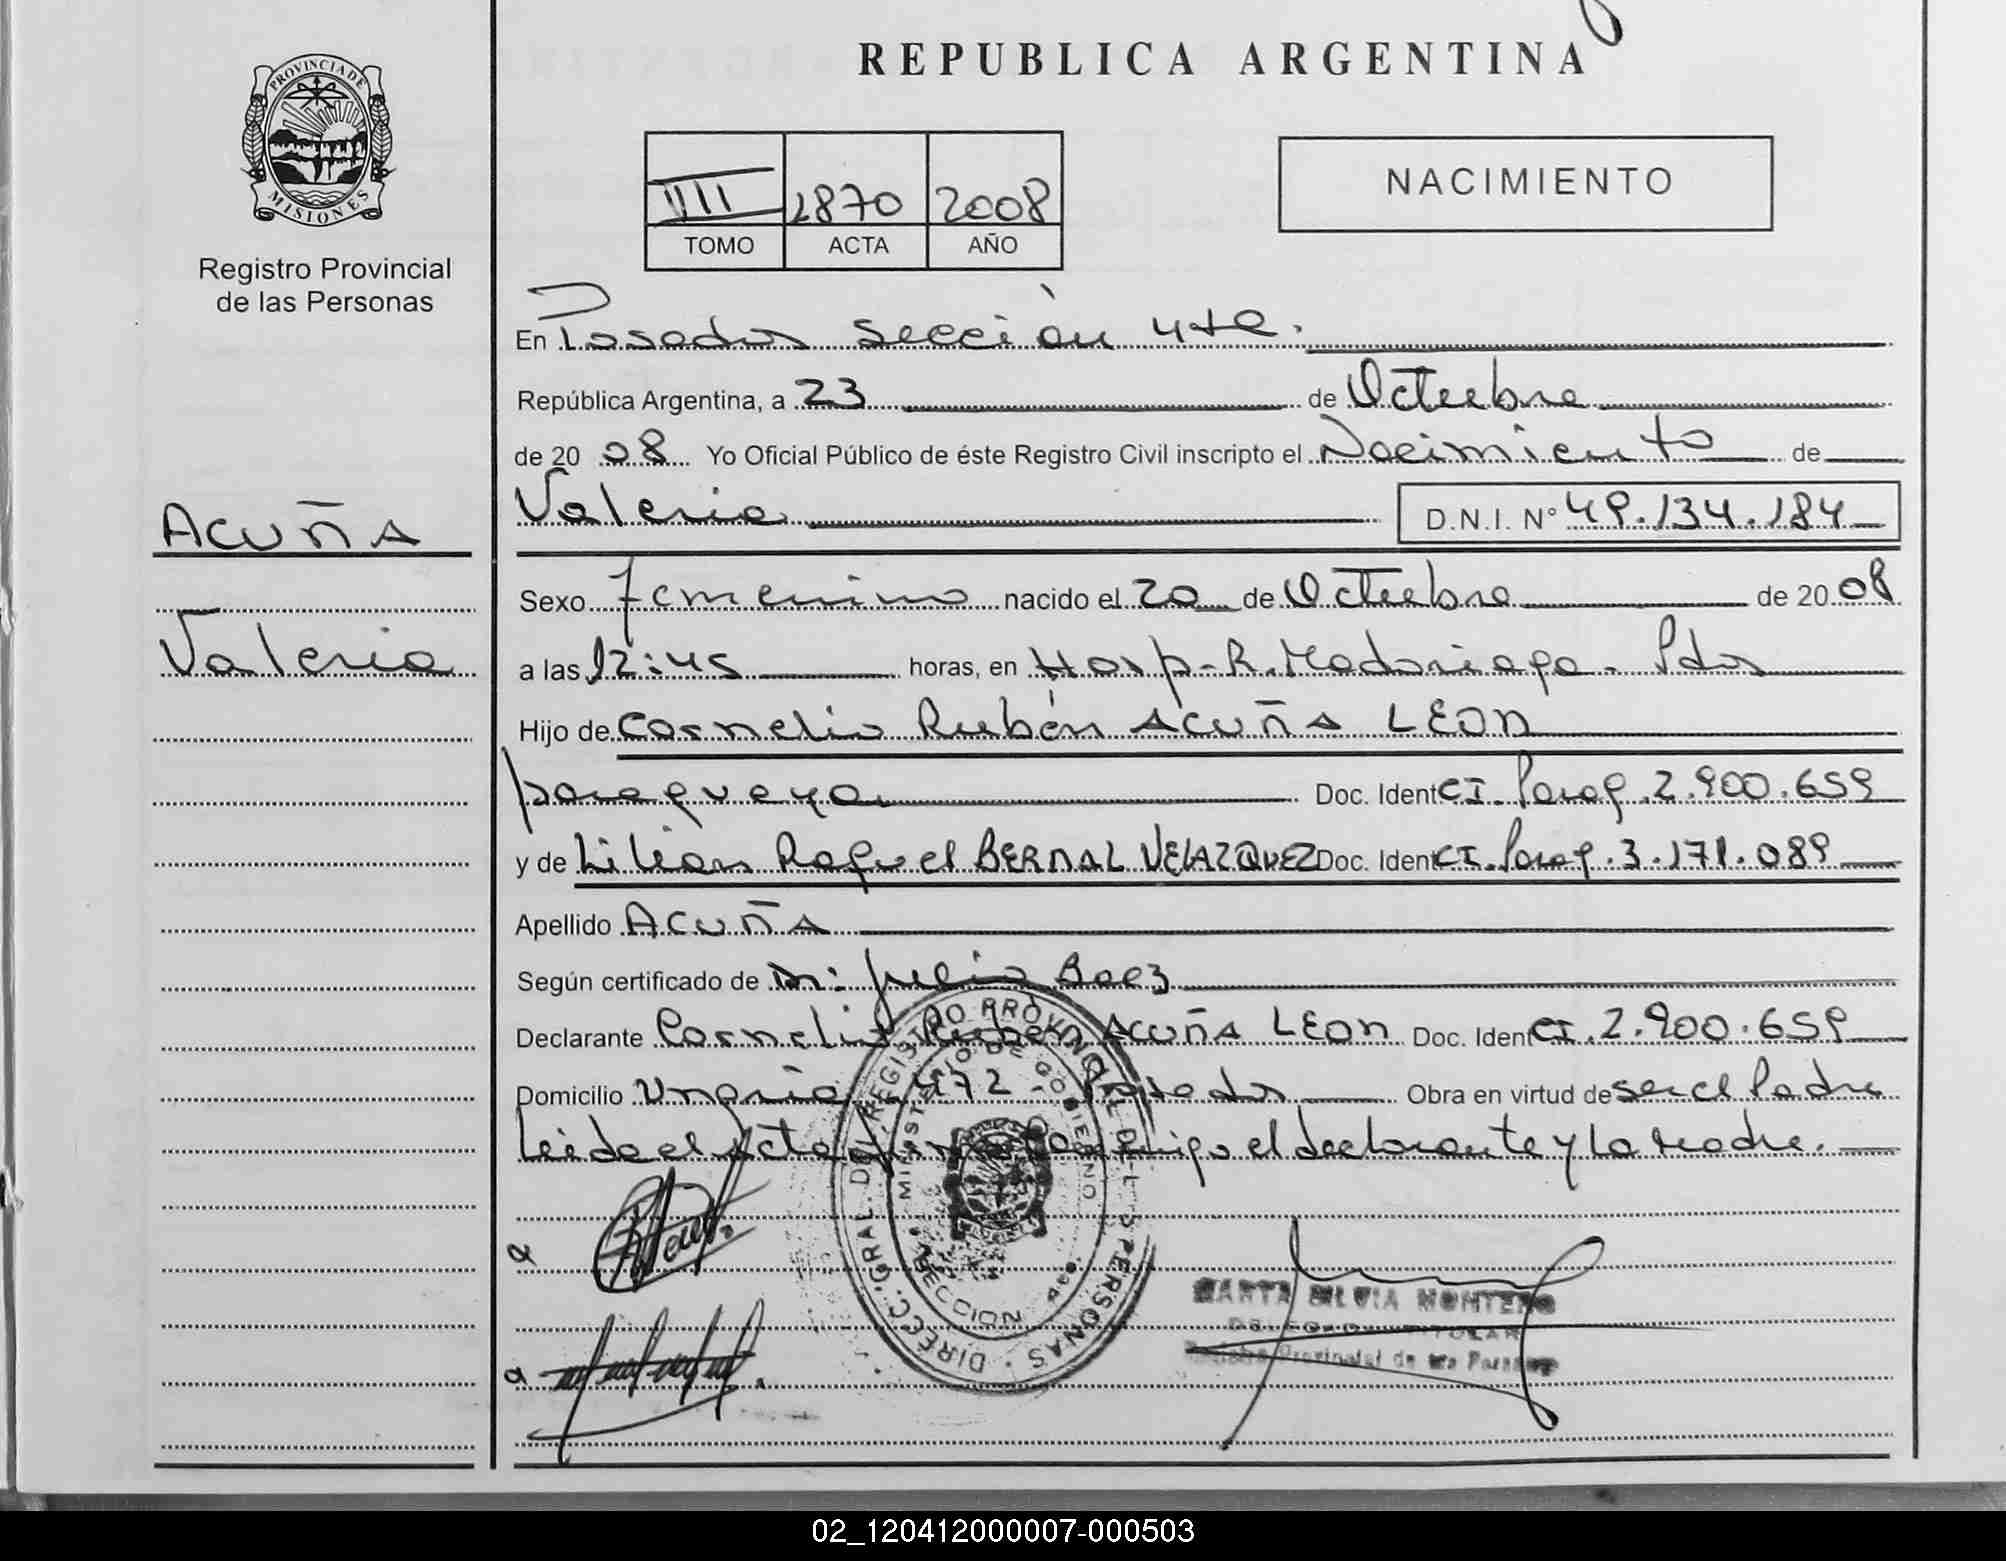 PROVINCIA DE
MISIONES
Registro Provincial
de las Personas
REPUBLICA ARGENTINA
VIII 2870 2008
TOMO ACTA AÑO
NACIMIENTO
En Posadas sección 4ta.
República Argentina, a 23 de Octubre
de 2008 Yo Oficial Público de éste Registro Civil inscripto el Nacimiento de
Valeria D.N.I. N° 49.134.184
ACUÑA
Valeria
Sexo femenino nacido el 20 de Octubre de 2008
a las 12:45 horas, en Hosp. R. Madariaga. Pdas
Hijo de Cornelio Rubén ACUÑA LEON
paraguaya Doc. Ident CI. Parag. 2.900.659
y de Lilian Raquel BERNAL VELAZQUEZ Doc. Ident CI. Parag. 3.171.089
Apellido ACUÑA
Según certificado de Dr: Julio Baez
Declarante Cornelio Rubén ACUÑA LEON Doc. Ident CI. 2.900.659
Domicilio Ungria 472 - Posadas Obra en virtud de ser el Padre
Leida el Acta firma conmigo el declarante y la Madre.
DIRECC. GRAL. DE REGISTRO PROVINCIAL DE L S PERSONAS
MINISTERIO DE GOBIERNO
SECCION 4ta
MARTA SILVIA MONTERO
DELEGADA TITULAR
Registro Provincial de las Personas
02_120412000007-000503